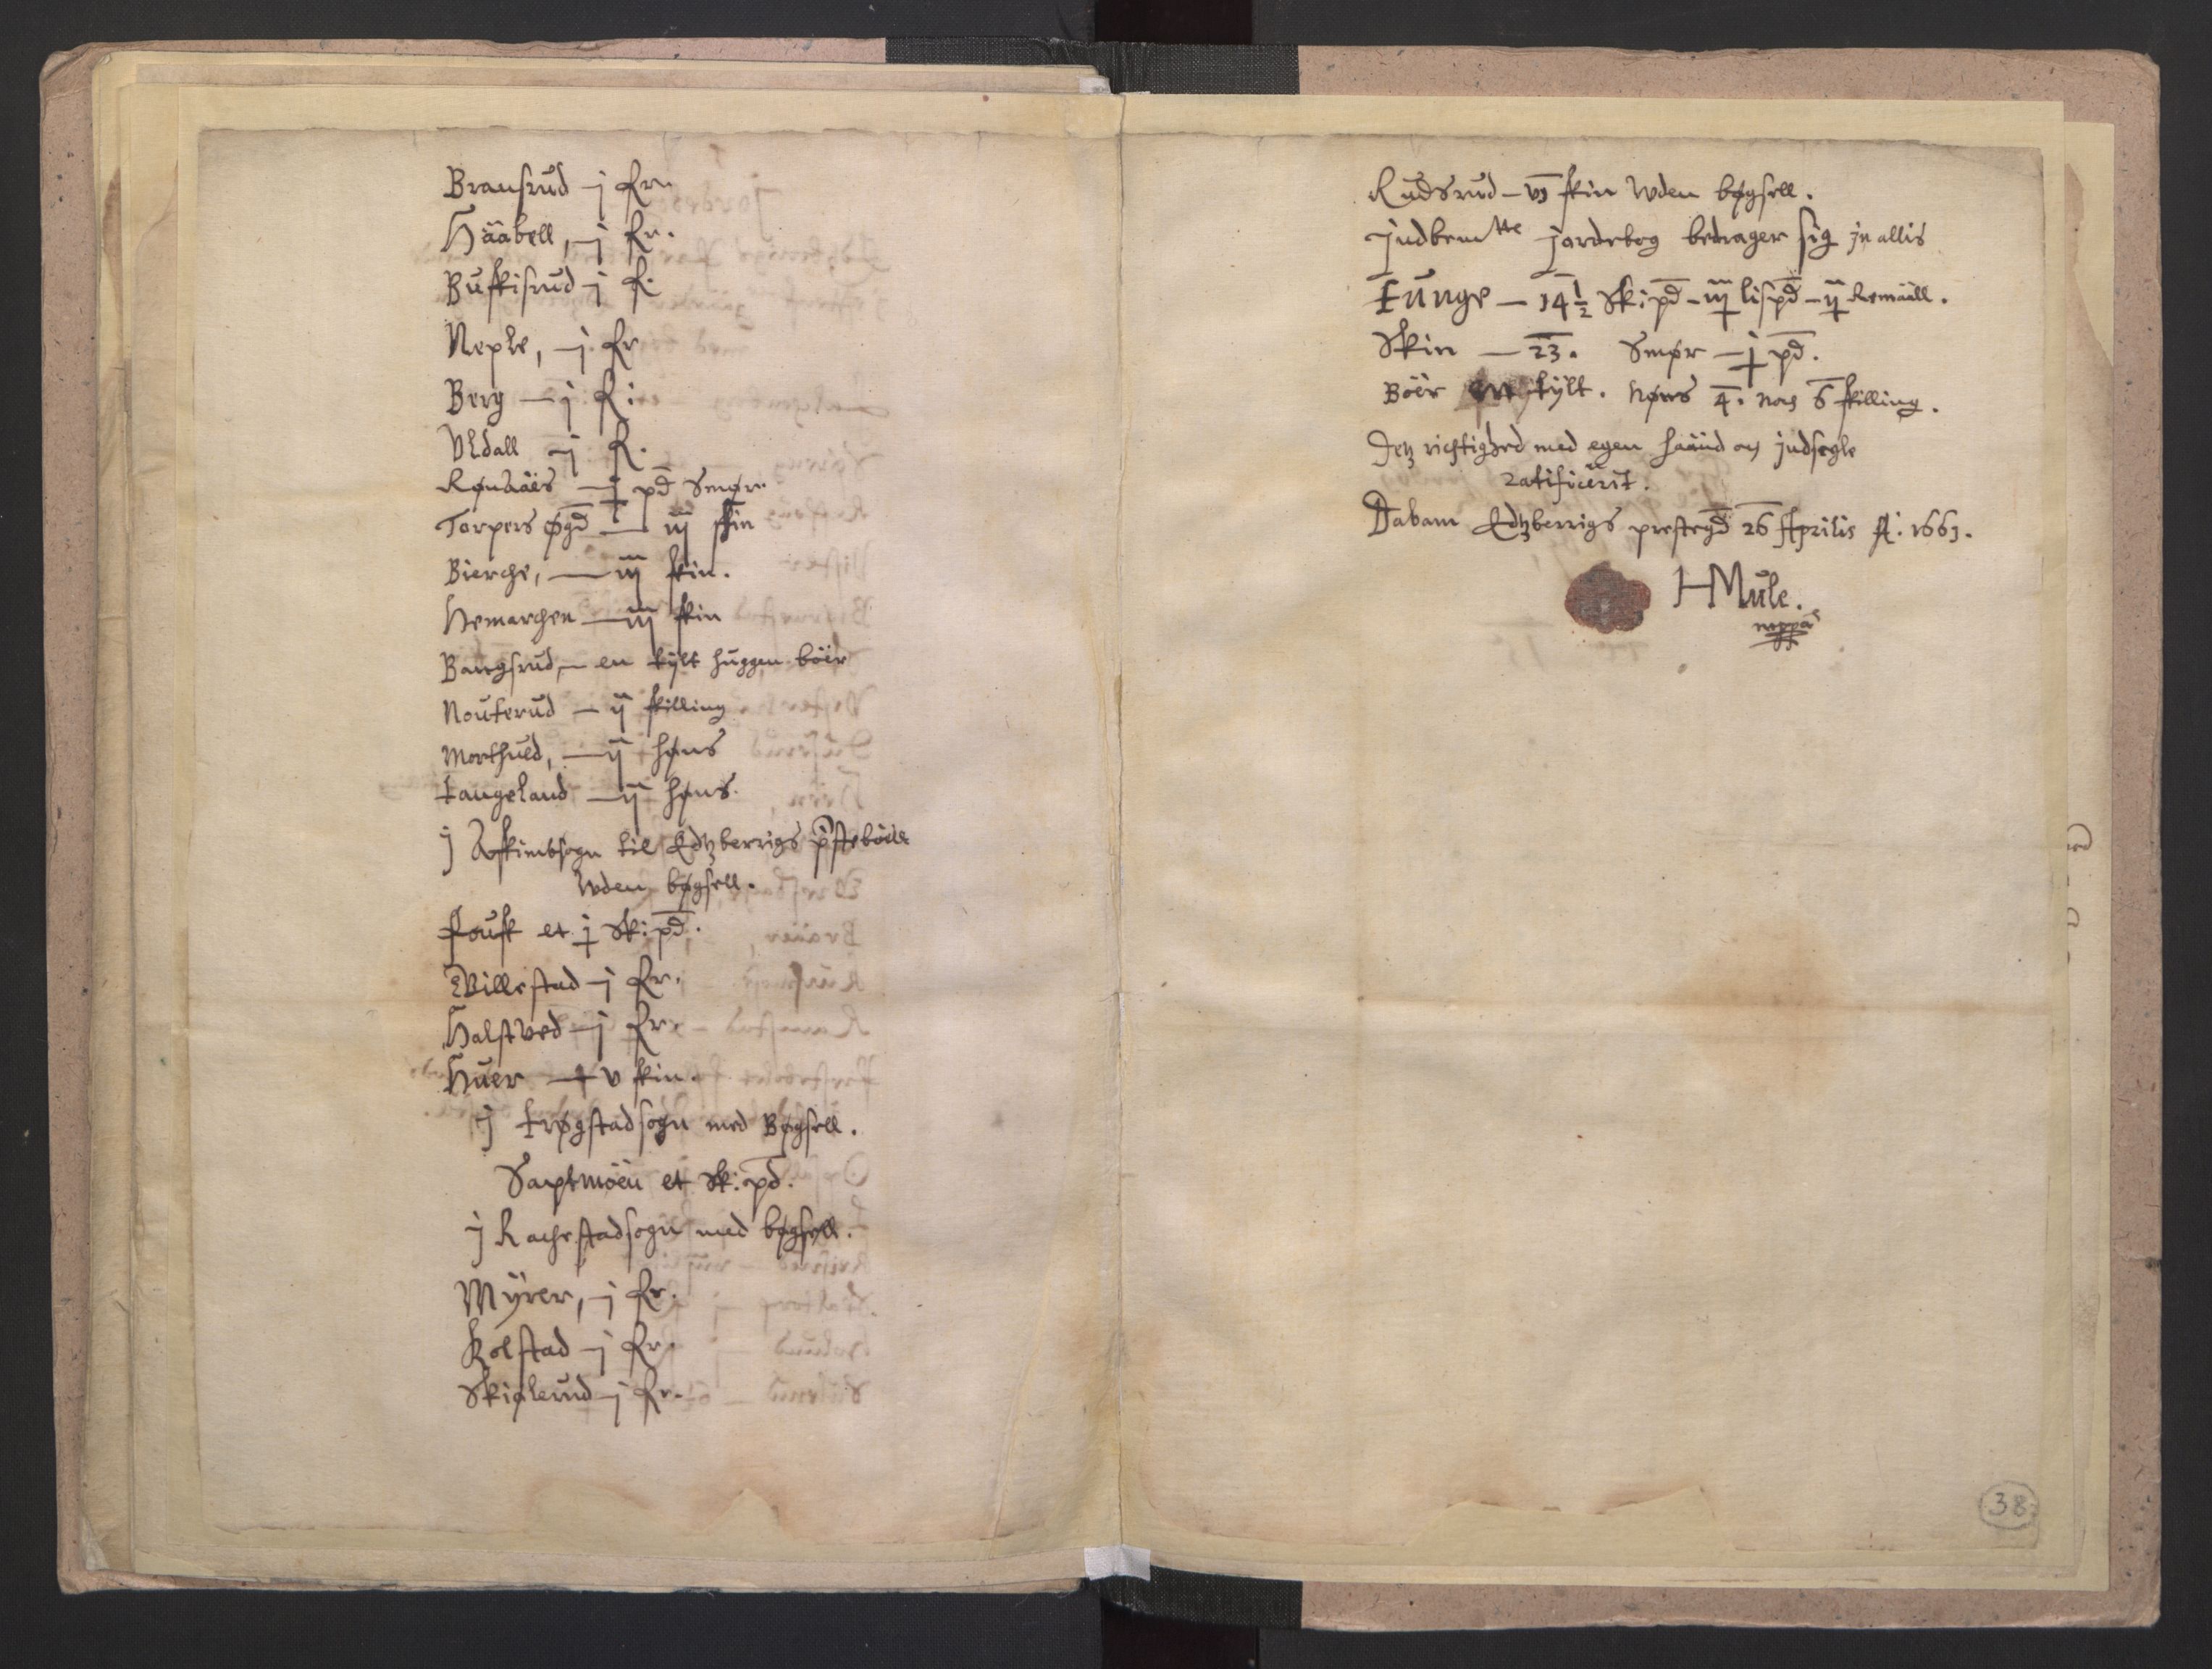 Bransrud – j fr.
Hääbell, – j fr.
Buskisrud – j fr.
Neple, – j. fr
Berg – j fr:
Uldall – j fr.
Rønaäes – j pd Smør.
Torpers ødgd – iij skin
Bierche, – iij skin.
Hemarchen – iij skin
Bangsrud, – en tylt huggen böir
Nouterud – ij skilling
Morthuld, – ij høns
Langeland – ij høns.
j Askimbsogn til Edtzberrigs pstebölle
Uden bøgsell.
Fousk et j Sk: pd.
Willestad – j fr.
Halstved – j fr.
Huer – v skin.
j Trøgstadsogn med Bøgsell.
Saptmöen et Sk: pd.
j Rachestadsogn med bøgsell.
Myrer, – j fr.
Kolstad – j fr.
Skiølerud – j fr.
Rudsrud – vj skin Uden bøgsell.
judbemte jordebog bedrager sig jn allis
Tunge – 14 1/2 Sk: pd – iij lispd – ij Remääll.
Skin – 23. Smør – j pd.
Böer en tylt. Høns 4. noch 6 skilling.
Detz richtighed med egen haand och judsegle
ratificerit.
Dabam Edtzberrigs prestegd 26 Aprilis A: 1661.
HMule.
mppa
38